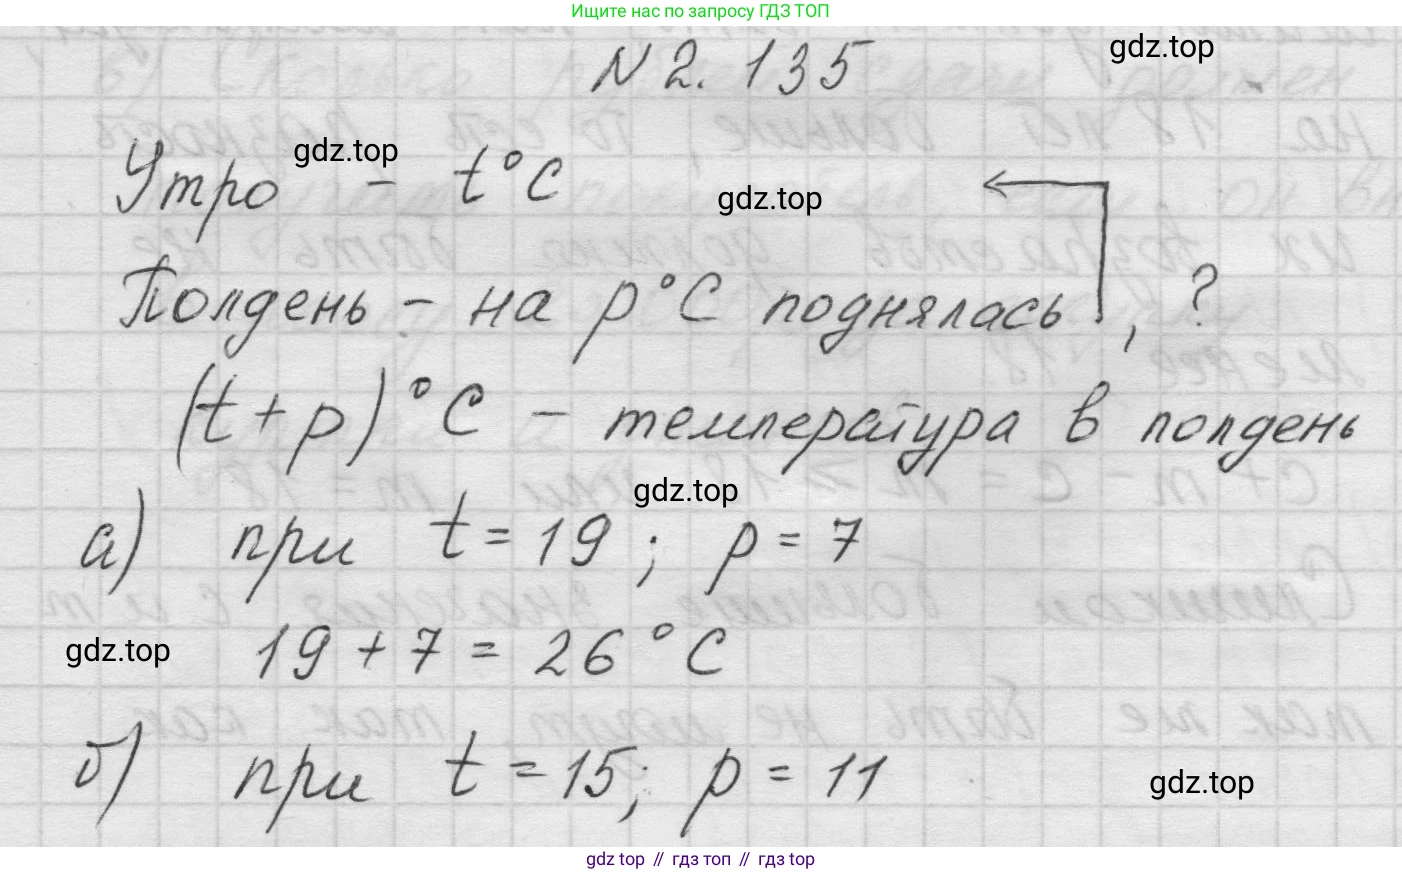 Ищите нас по запросу ГДЗ ТОП
N 2. 135
gdz.top
gdz.top
Утро - t°C
gdz.top
Полдень - на p°C поднялась, ?
(t + p)°C - температура в полдень
gdz.top
а) при t = 19 ; p = 7
gdz.top
19 + 7 = 26 °C
б) при t = 15; p = 11
gdz.top
gdz top // гдз топ // gdz top